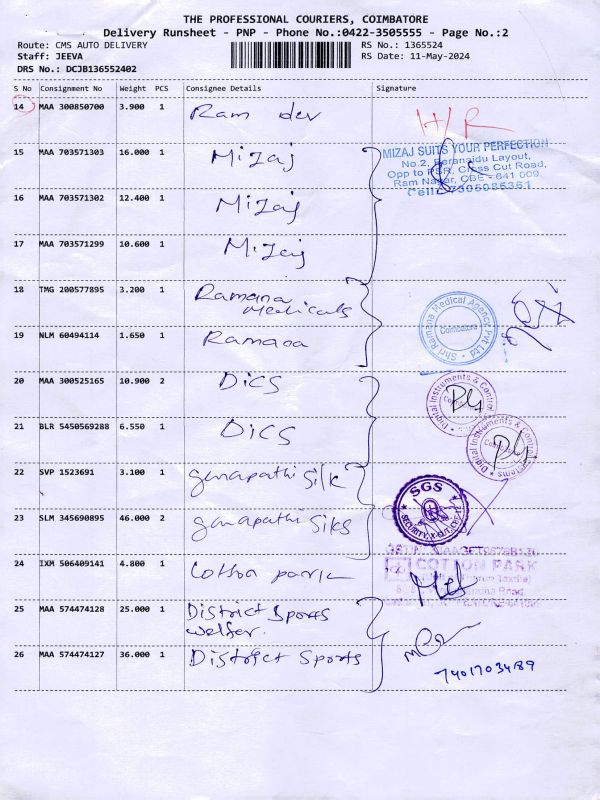 THE PROFESSIONAL COURIERS, COIMBATORE
Delivery Runsheet - PNP - Phone No.:0422-3505555 - Page No.:2
Route: CMS AUTO DELIVERY RS No.: 1365524
Staff: JEEVA RS Date: 11-May-2024
DRS No.: DCJB136552402
S No Consignment No Weight PCS Consignee Details Signature
14 MAA 300850700 3.900 1 Ram dev H/R
15 MAA 703571303 16.000 1 Mizaj
MIZAJ SUITS YOUR PERFECTION
No.2, Peranaidu Layout,
Opp to PSR, Cross Cut Road,
Ram Nagar, CBE - 641 009.
Cell: 7395085361
16 MAA 703571302 12.400 1 Mizaj
17 MAA 703571299 10.600 1 Mizaj
18 TMG 200577895 3.200 1 Ramana Medicals
Shri Ramana Medical Agency Pvt Ltd
Coimbatore
19 NLM 60494114 1.650 1 Ramana
20 MAA 300525165 10.900 2 DiCS
Digital Instruments & Control
21 BLR 5450569288 6.550 1 DiCS
Digital Instruments & Control Systems
22 SVP 1523691 3.100 1 ganapathi Silk
SGS
SECURITY
23 SLM 345690895 46.000 2 ganapathi Silks
24 IXM 506409141 4.800 1 Cotton park
COTTON PARK
Road,
25 MAA 574474128 25.000 1 District Sports
welfer.
26 MAA 574474127 36.000 1 District Sports
7401703489